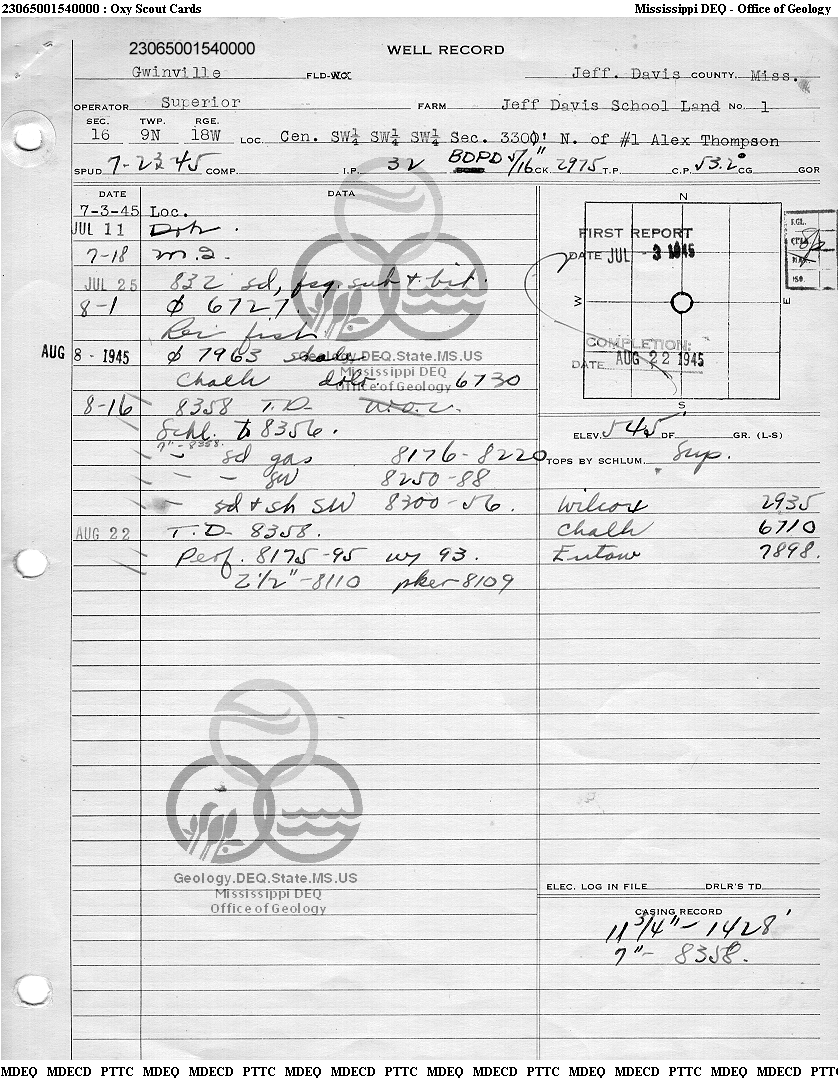 23065001540000 : Oxy Scout Cards Mississippi DEQ - Office of Geology
23065001540000 WELL RECORD
Gwinville FLD-WCX Jeff. Davis COUNTY, Miss.
OPERATOR Superior FARM Jeff Davis School Land No. 1
SEC. TWP. RGE.
16 9N 18W LOC. Cen. SW¼ SW¼ SW¼ Sec. 3300' N. of #1 Alex Thompson
SPUD 7-2345 COMP. I.P. 32 BDPD 5/16" CK. 2975 T.P. C.P. 53.2° CG GOR
DATE DATA
7-3-45 Loc.
JUL 11
7-18 m.2.
JUL 25 832 sd, fsg. sub + bit.
8-1 ϕ 6727.
fish
AUG 8 - 1945 ϕ 7963
Chalk 6730
8-16 8358 T.D. W.O.C.
Schl. to 8356.
7"-8358.
" - sd gas 8176-8220
" - SW 8250-88
" - sd + sh SW 8300-56.
AUG 22 T.D. 8358.
Perf. 8175-95 w/ 93.
2½"-8110 pker-8109
N
FIRST REPORT
DATE JUL - 3 1945
W E
COMPLETION:
DATE AUG 22 1945
S
ELEV. 545 DF GR. (L-S)
TOPS BY SCHLUM. Sup.
Wilcox 2935
Chalk 6710
Eutaw 7898.
ELEC. LOG IN FILE DRLR'S TD
CASING RECORD
11 3/4" - 1428'
7" - 8358.
Geology.DEQ.State.MS.US
Mississippi DEQ
Office of Geology
Geology.DEQ.State.MS.US
Mississippi DEQ
Office of Geology
MDEQ MDECD PTTC MDEQ MDECD PTTC MDEQ MDECD PTTC MDEQ MDECD PTTC MDEQ MDECD PTTC MDEQ MDECD PTTC